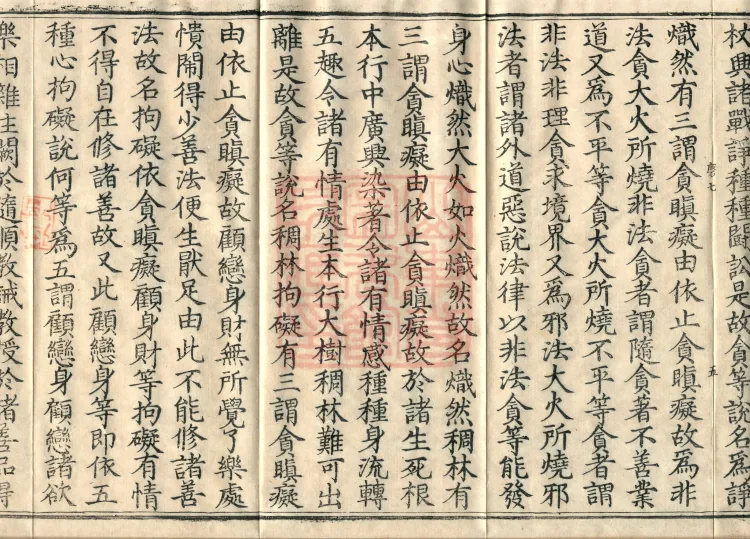 杖興諸戰諍種種鬪訟是故貪等說名爲諍
熾然有三謂貪瞋癡由依止貪瞋癡故爲非
法貪大火所燒非法貪者謂隨貪著不善業
道又爲不平等貪大火所燒不平等貪者謂
五
非法非理貪求境界又爲邪法大火所燒邪
法者謂諸外道惡說法律以非法貪等能發
身心熾然大火如火熾然故名熾然稠林有
三謂貪瞋癡由依止貪瞋癡故於諸生死根
本行中廣興染著令諸有情感種種身流轉
五趣令諸有情處生本行大樹稠林難可出
離是故貪等說名稠林拘礙有三謂貪瞋癡
由依止貪瞋癡故顧戀身財無所覺了樂處
憒鬧得少善法便生猒足由此不能修諸善
法故名拘礙依貪瞋癡顧身財等拘礙有情
不得自在修諸善故又此顧戀身等即依五
種心拘礙說何等爲五謂顧戀身顧戀諸欲
樂相雜住闕於隨順教誡教授於諸善品得